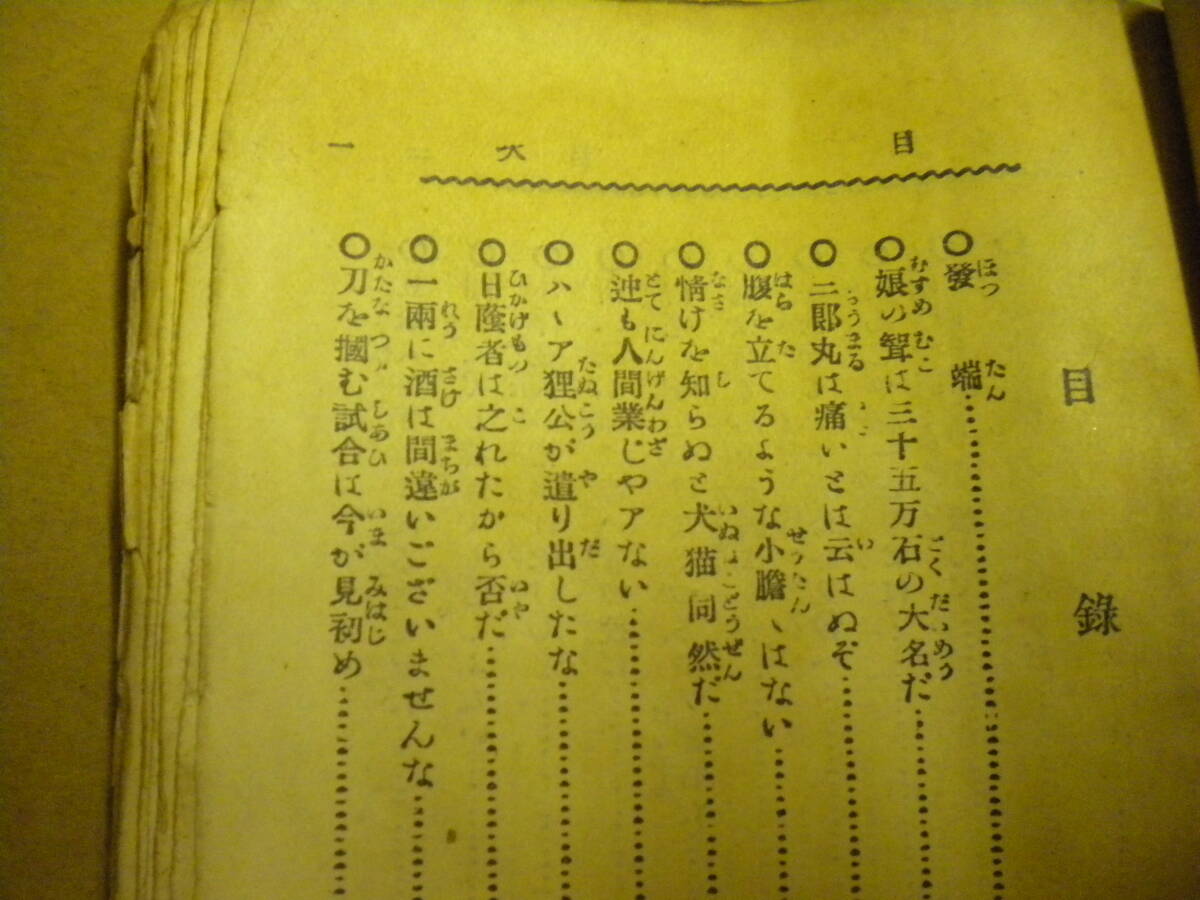 目次 一
目錄
○發端
○娘の聟は三十五万石の大名だ
○三郎丸は痛いとは云はぬぞ
○腹を立てるような小膽ゝはない
○情けを知らぬと犬猫同然だ
○迚も人間業じやアない
○ハヽア狸公が遣り出したな
○日蔭者は之れたから否だ
○一兩に酒は間違いございませんな
○刀を摑む試合は今が見初め